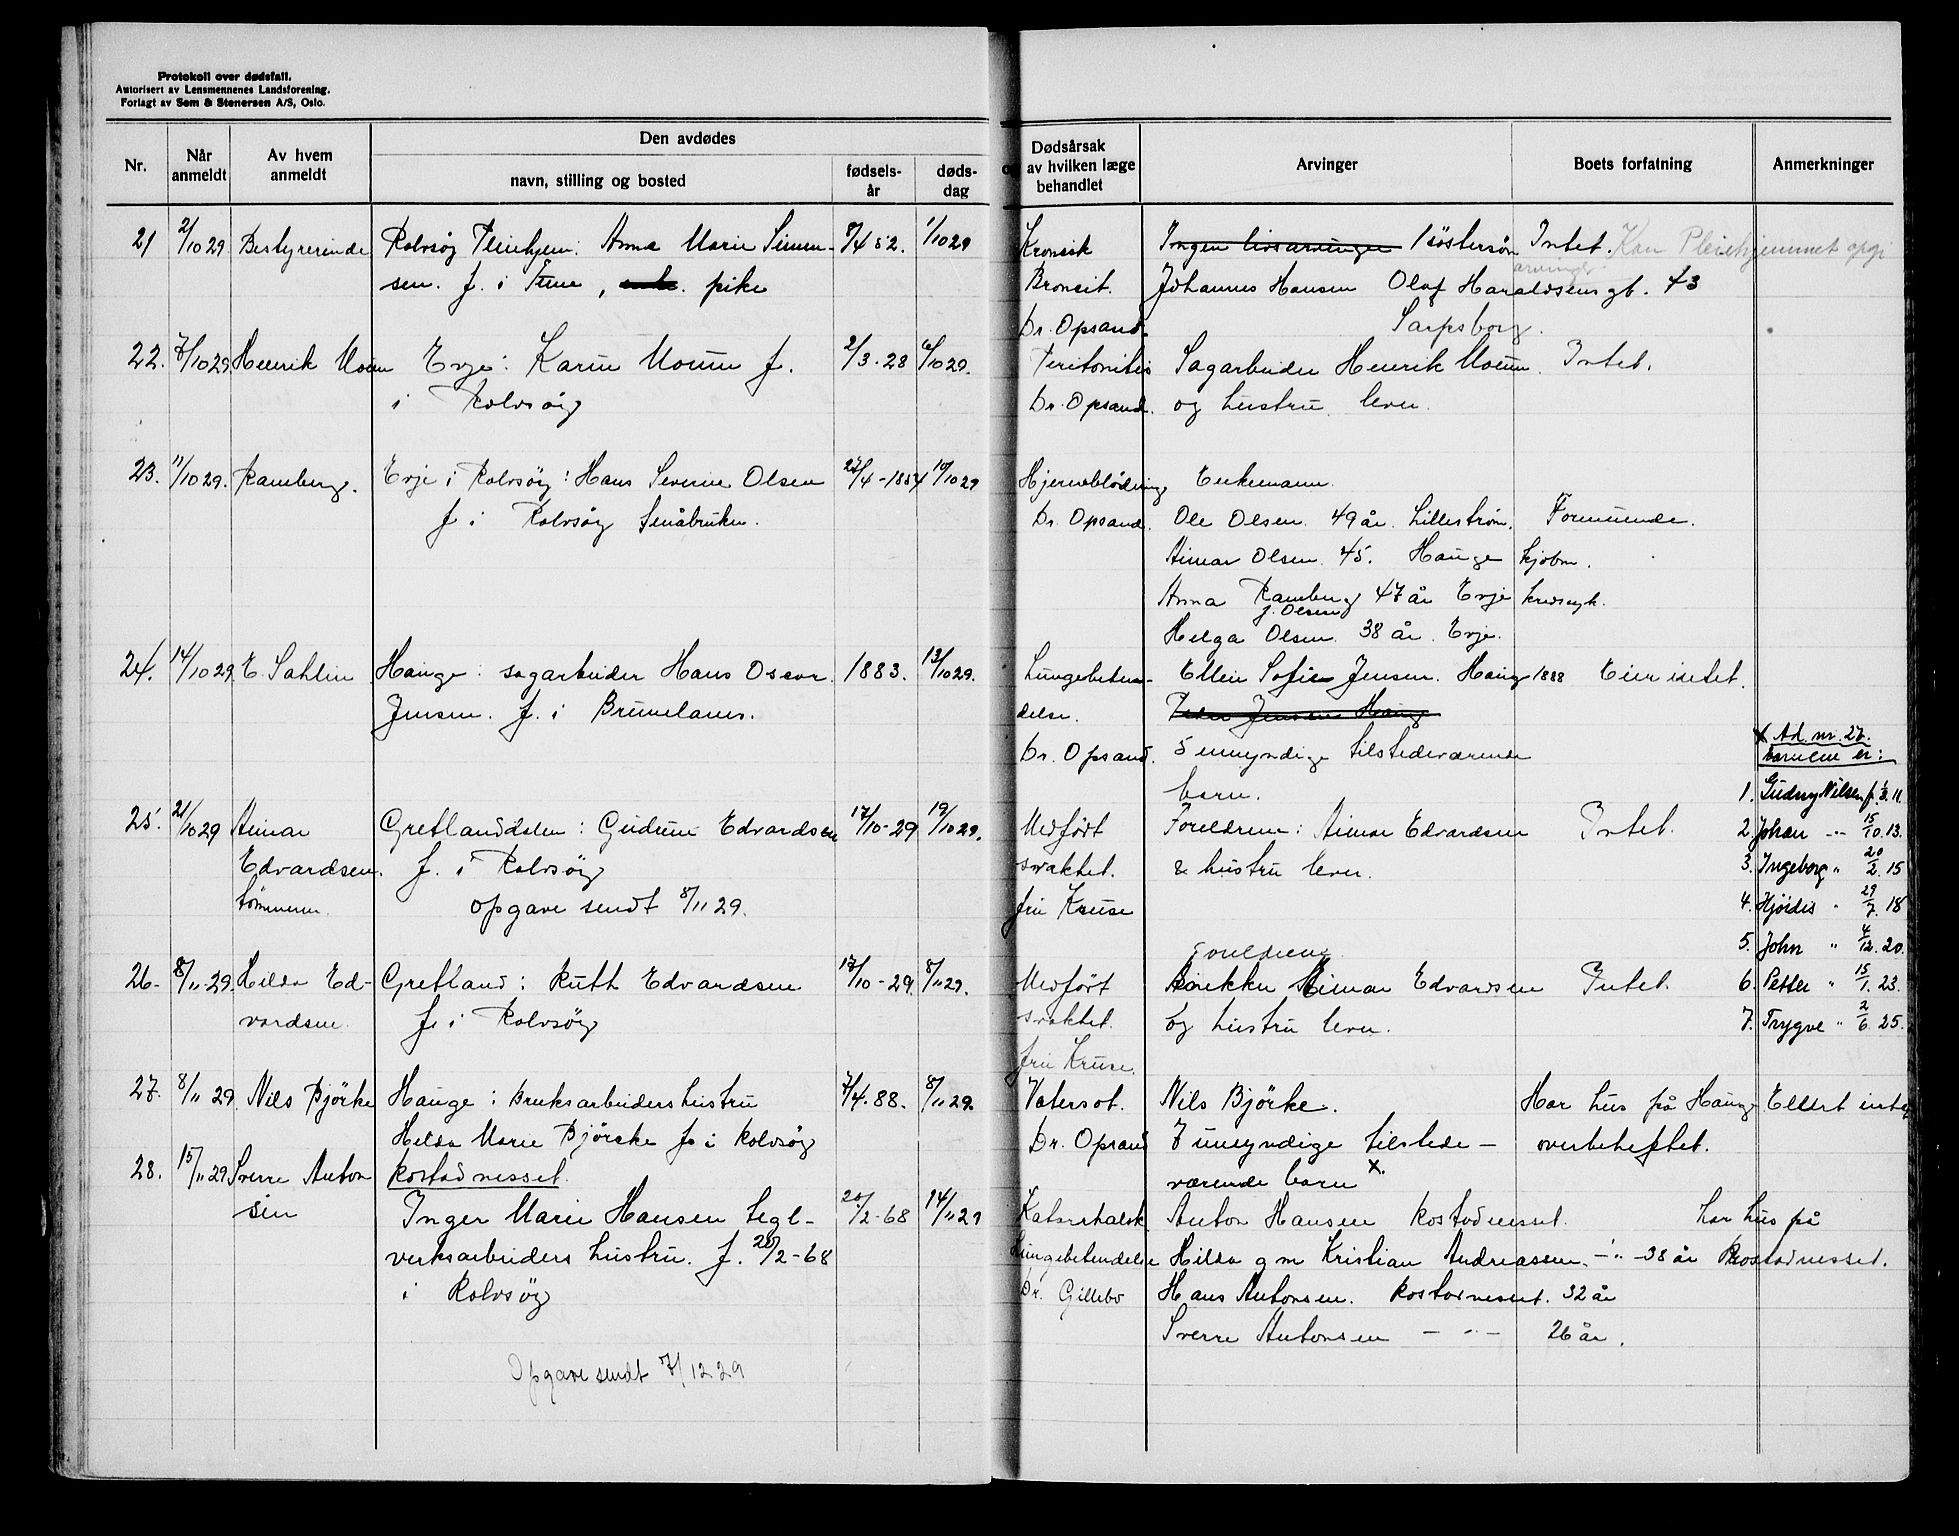 Protokoll over dødsfall.
Autorisert av Lensmennenes Landsforening.
Forlagt av Sem & Stenersen A/S, Oslo.
Nr. Når anmeldt Av hvem anmeldt Den avdødes
navn, stilling og bosted fødselsår dødsdag
og Dødsårsak av hvilken læge behandlet Arvinger Boets forfatning Anmerkninger
21 2/10 29 Bestyrerinde Rolvsøy Pleiehjem: Anna Marie Simen- 7/4 52. 1/10 29 Kronisk Ingen livsarvinger 1 søstersøn Intet. Kan Pleiehjemmet opgi
arvinger
sen. f. i Tune, pike Broncit. Johannes Hansen Olaf Haraldsens gt. 43
Dr. Opsand. Sarpsborg.
22. 7/10 29 Henrik Moum Evje: Karin Moum f. 2/3-28 6/10 29. Peritonitis Sagarbeider Henrik Moum. Intet.
i Rolvsøy Dr. Opsand. og hustru lever.
23. 11/10 29. Ramberg. Evje i Rolvsøy: Hans Severin Olsen 27/4-1854 10/10 29 Hjerneblødning Enkemann.
f. i Rolvsøy Småbruker. Dr. Opsand. Ole Olsen. 49 år. Lillestrøm. Formuende.
Aimar Olsen. 45. Hauge kjøbm.
Anna Ramberg 47 år Evje
f. Olsen
Helga Olsen. 38 år. Evje.
24. 14/10 29 E. Sahlin Hauge: sagarbeider Hans Oscar 1883. 13/10 29. Lungebeten- Ellen Sofie Jensen. Haug 1888 Eier intet.
Jensen. f. i Brunlanes. delse. Peder Jensen Haug
Dr. Opsand. 5 umyndige tilstedeværende
barn.
x Ad. nr. 27.
barnene er:
1. Gudny Nilsen f. 1/3. 11
25. 21/10 29 Aimar Gretlanddalen: Gudrun Edvardsen 17/10-29 19/10 29. Medfødt Foreldrene: Aimar Edvardsen Intet. 2. Johan -"- 15/10. 13.
Edvardsen. f. i Rolvsøy svakhet. & hustru lever. 3. Ingeborg " 20/2. 15
tømmerm. opgave sendt 8/11 29. fru Kruse 4. Hjørdis " 29/7. 18
5. John " 4/12. 20.
Foreldrene
26. 8/11 29. Hilda Ed- Gretland: Ruth Edvardsen 17/10-29. 8/11 29. Medfødt Aimar Edvardsen Intet. 6. Petter " 15/1. 23.
vardsen. f. i Rolvsøy svakhet. og hustru lever. 7. Trygve " 2/6. 25.
fru Kruse.
27. 8/11 29 Nils Bjørke Hauge: Bruksarbeiders hustru 7/4. 88. 8/11 29. Vatersot. Nils Bjørke. Har hus på Haug Ellers intet
Hilda Marie Bjørcke f. i Rolvsøy Dr. Opsand 7 umyndige tilstede- overbeheftet.
28. 15/11 29 Sverre Anton Rostadnesset. værende barn x.
sen Inger Marie Hansen tegl- 20/2-68 14/11 29 Katarrhalsk Anton Hansen Rostadnesset. har hus på
verksarbeiders hustru. f. 20/2-68 Lungebetendelse Hilda g m Kristian Andreassen. -"- 38 år Rostadnesset.
i Rolvsøy Dr. Gillebo Hans Antonsen. Rostadnesset. 32 år
Sverre Antonsen -"- 26 år.
Opgave sendt 7/12 29